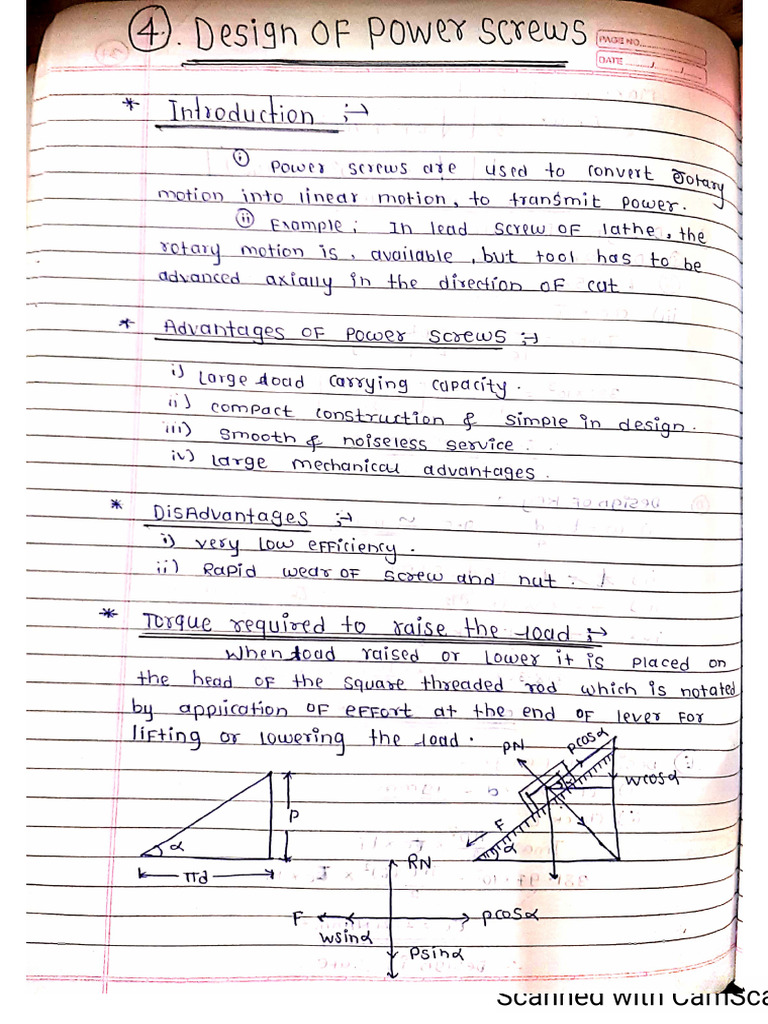 4. Design of power screws
PAGE NO.
DATE / /
* Introduction :→
i) power screws are used to convert rotary
motion into linear motion, to transmit power.
ii) Example: In lead screw of lathe, the
rotary motion is, available, but tool has to be
advanced axially in the direction of cut
* Advantages of power screws :→
i) Large load carrying capacity.
ii) compact construction & simple in design.
iii) smooth & noiseless service.
iv) large mechanical advantages.
* DisAdvantages :→
i) very low efficiency.
ii) Rapid wear of screw and nut.
* Torque required to raise the load :→
When load raised or lower it is placed on
the head of the square threaded rod which is notated
by application of effort at the end of lever for
lifting or lowering the load.
PN pcosα
wcosα
P
F
α α
πd
RN
F pcosα
wsinα
Psinα
Scanned with CamSca